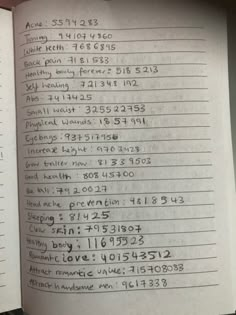 Acne: 5594283
Toning: 941074860
White teeth: 7686895
Back pain: 7181533
Healthy body forever: 5185213
Self healing: 721348192
Abs: 7417425
Small waist: 325522753
Physical wounds: 1857991
Eyebags: 937517956
Increase height: 9702428
Grow taller now: 81339503
Good health: 80845700
Be tall: 7920027
Headache prevention: 4818543
Sleeping: 81425
Clear skin: 79531807
Healthy body: 11695523
Romantic love: 401543512
Attract romantic values: 715708033
Attract handsome men: 9617338